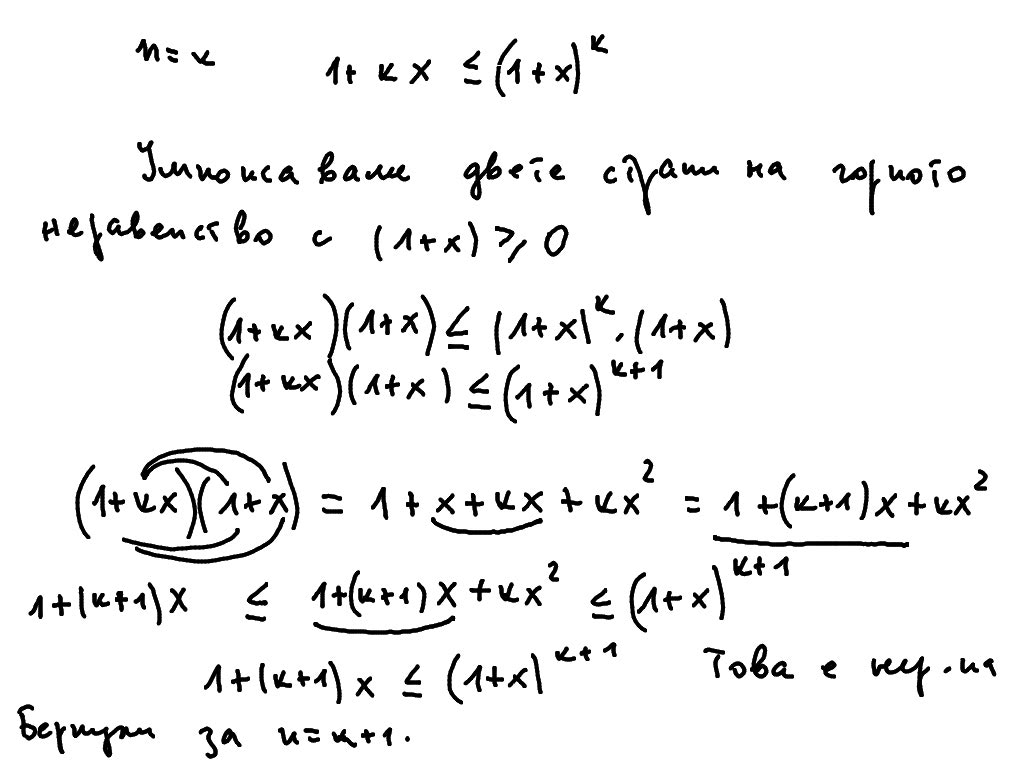 n=k 1+kx ≤ (1+x)^k
Умножаваме двете страни на горното
неравенство с (1+x) ≥ 0
(1+kx)(1+x) ≤ (1+x)^k . (1+x)
(1+kx)(1+x) ≤ (1+x)^{k+1}
(1+kx)(1+x) = 1+x+kx+kx^2 = 1+(k+1)x+kx^2
1+(k+1)x ≤ 1+(k+1)x+kx^2 ≤ (1+x)^{k+1}
1+(k+1)x ≤ (1+x)^{k+1} Това е нер. на
Бернули за n=k+1.